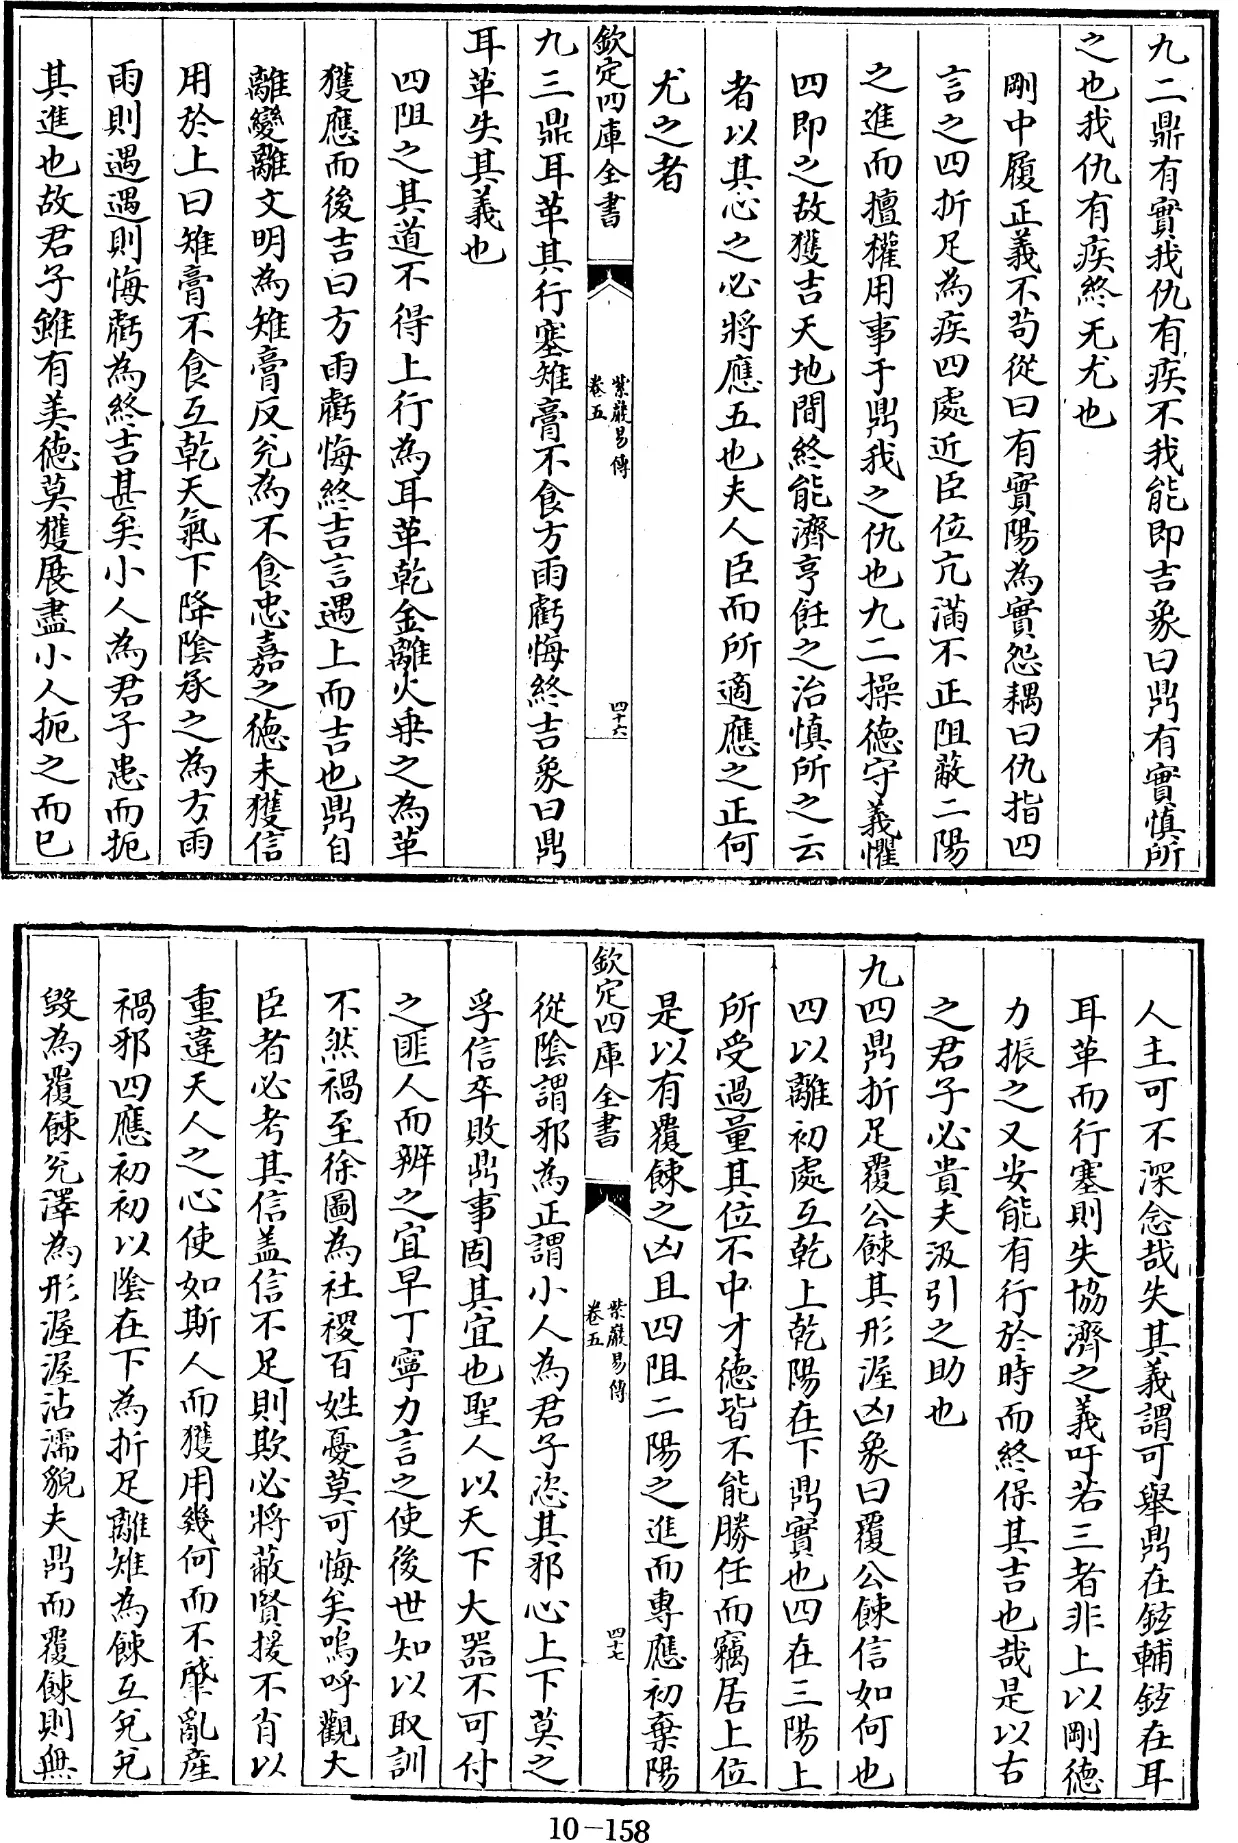 九二鼎有實我仇有疾不我能即吉象曰鼎有實慎所
之也我仇有疾終无尤也
剛中履正義不苟從曰有實陽為實怨耦曰仇指四
言之四折足為疾四處近臣位亢滿不正阻蔽二陽
之進而擅權用事于鼎我之仇也九二操徳守義懼
四即之故獲吉天地間終能濟亨飪之治慎所之云
者以其心之必將應五也夫人臣而所適應之正何
尤之者
欽定四庫全書
紫巖易傳
卷五
四十六
九三鼎耳革其行塞雉膏不食方雨虧悔終吉象曰鼎
耳革失其義也
四阻之其道不得上行為耳革乾金離火乗之為革
獲應而後吉曰方雨虧悔終吉言遇上而吉也鼎自
離變離文明為雉膏反兊為不食忠嘉之徳未獲信
用於上曰雉膏不食互乾天氣下降隂承之為方雨
雨則遇遇則悔虧為終吉甚矣小人為君子患而扼
其進也故君子雖有美徳莫獲展盡小人扼之而已
人主可不深念哉失其義謂可舉鼎在鉉輔鉉在耳
耳革而行塞則失協濟之義吁若三者非上以剛徳
力振之又安能有行於時而終保其吉也哉是以古
之君子必貴夫汲引之助也
九四鼎折足覆公餗其形渥凶象曰覆公餗信如何也
四以離初處互乾上乾陽在下鼎實也四在三陽上
所受過量其位不中才徳皆不能勝任而竊居上位
是以有覆餗之凶且四阻二陽之進而專應初棄陽
欽定四庫全書
紫巖易傳
卷五
四十七
從隂謂邪為正謂小人為君子恣其邪心上下莫之
孚信卒敗鼎事固其宜也聖人以天下大器不可付
之匪人而辨之宜早丁寧力言之使後世知以取訓
不然禍至徐圖為社稷百姓憂莫可悔矣嗚呼觀大
臣者必考其信盖信不足則欺必將蔽賢援不肖以
重違天人之心使如斯人而獲用幾何而不肇亂産
禍邪四應初初以隂在下為折足離雉為餗互兊兊
毀為覆餗兊澤為形渥渥沾濡貌夫鼎而覆餗則無
10-158